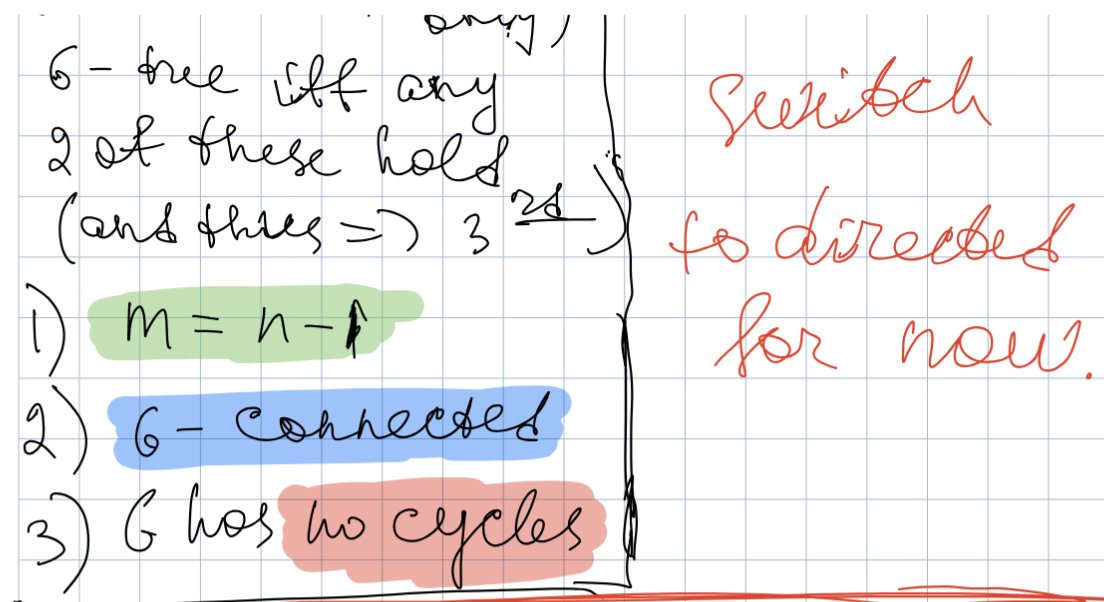 only)
G - tree iff any
2 of these hold
(and this => 3 rd)
1) m = n - 1
2) G - connected
3) G has no cycles
switch
to directed
for now.